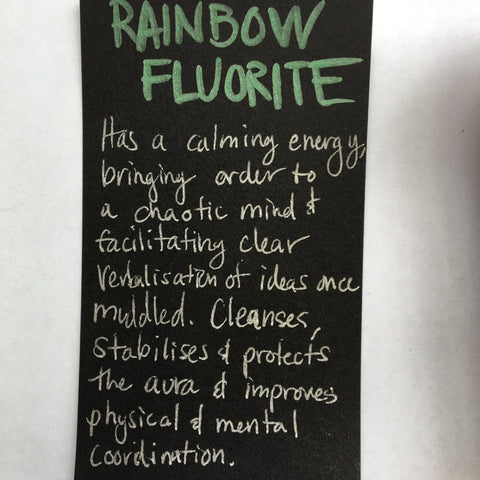 RAINBOW
FLUORITE
Has a calming energy,
bringing order to
a chaotic mind &
facilitating clear
verbalisation of ideas once
muddled. Cleanses,
stabilises & protects
the aura & improves
physical & mental
coordination.